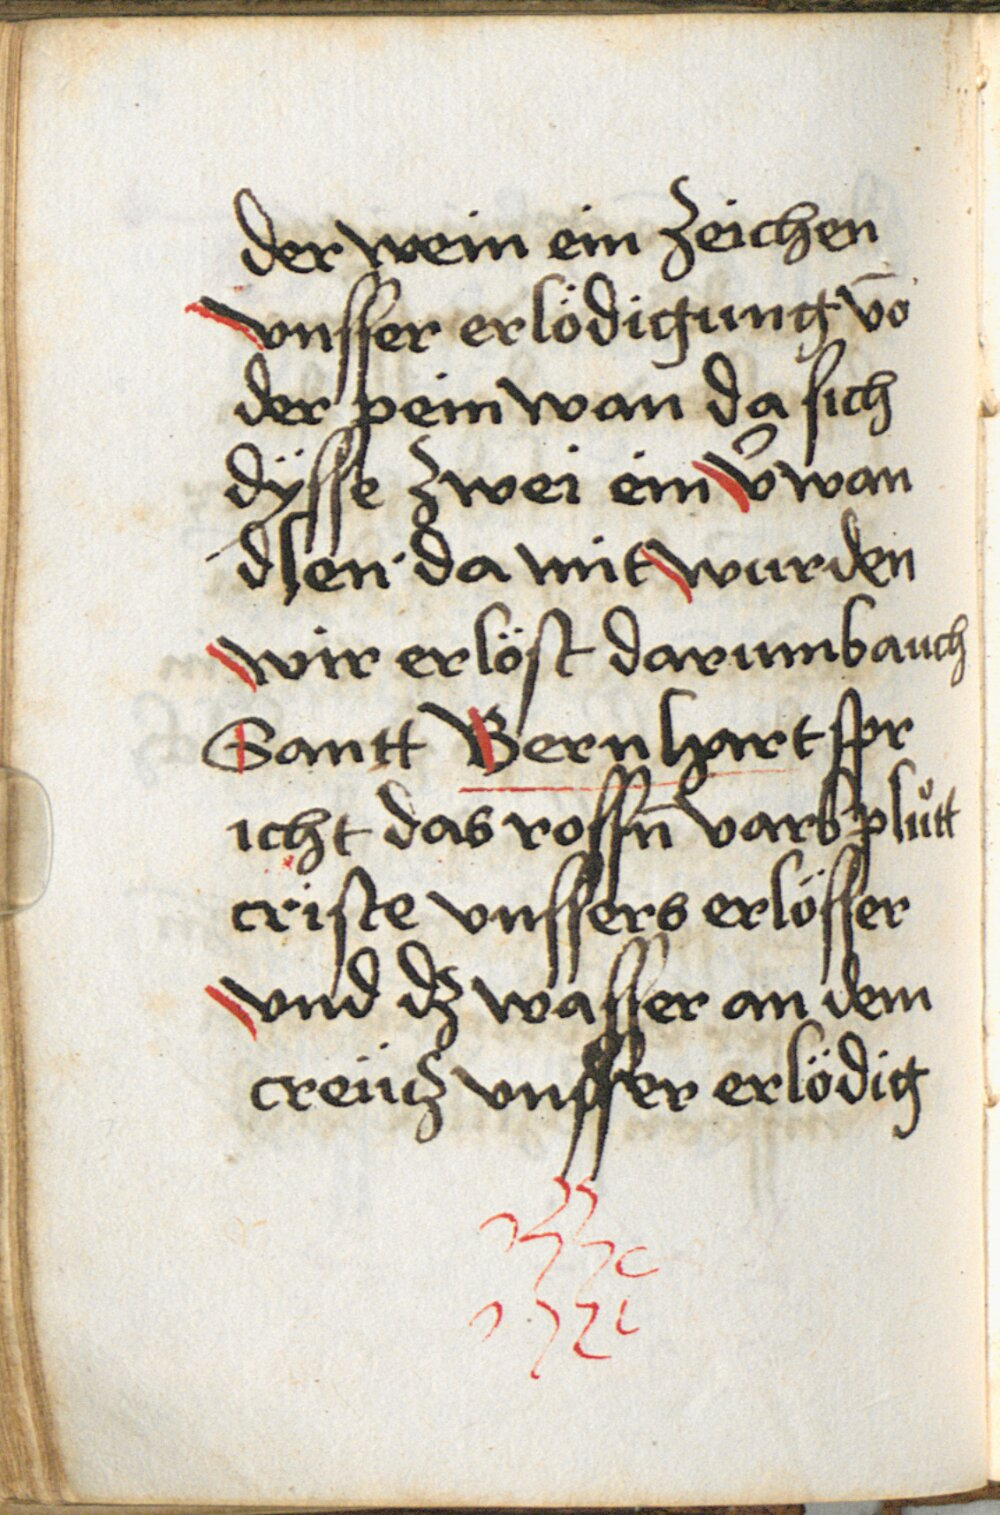 der wein ein zeichen
vnsser erlödigung vō
der pein wan da sich
dÿsse zwei ein v̄wan
dlen · da mit wurden
wir erlöst darumb auch
Santt Bernhart spr
icht das rossn̄ varb plůtt
criste vnssers erlösser
vnd dz wasser an dem
creütz vnsser erlödig